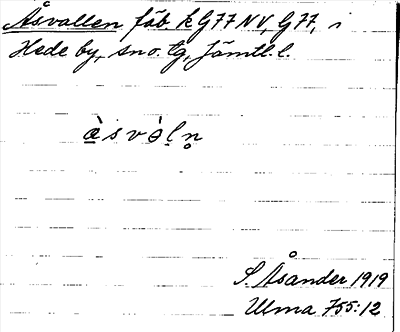 Åsvallen fäb. k G77 NV, G77, i
Hede by, sn o. tg, Jämtl. l.
å̀svə̀ḷn̥
S. Åsander 1919
Ulma 755:12